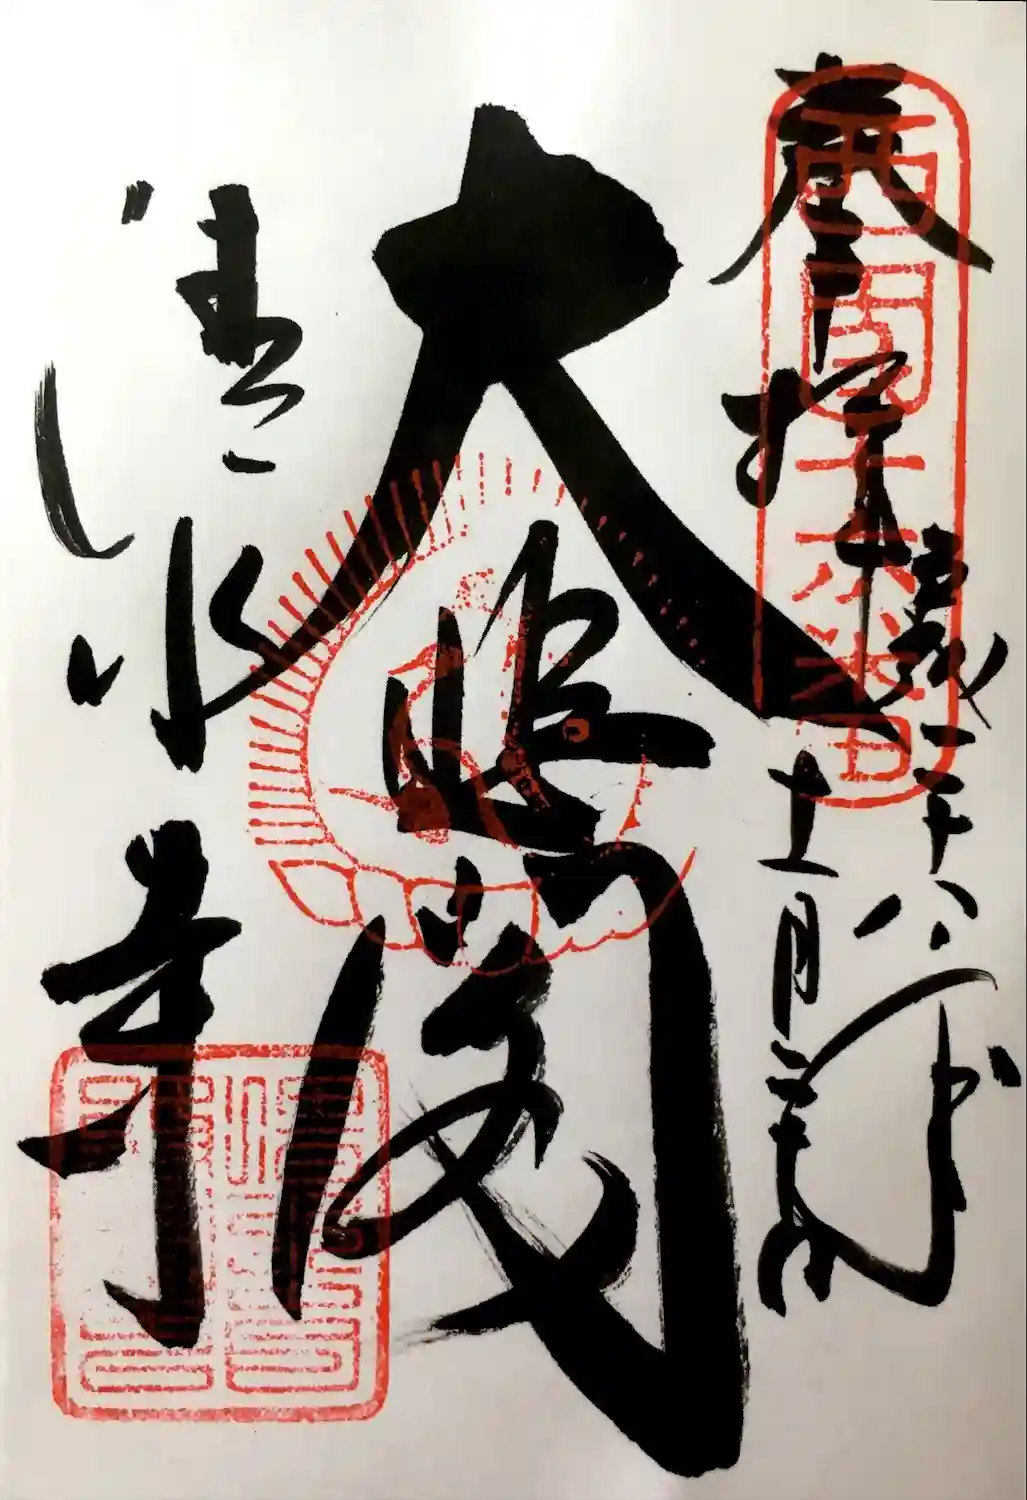 奉拝
西国十六番
平成二十八年
十一月二十
大悲閣
清水寺